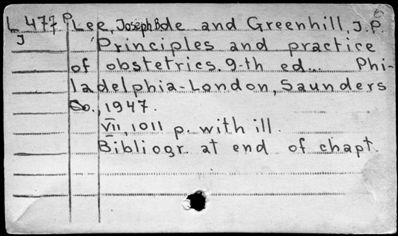 L 477 p Lee, Joseph Bole and Greenhill, J.P.
J Principles and practice
of obstetrics. 9-th ed... Phi-
ladelphia-London, Saunders
Co., 1947.
VII, 1011 p. with ill.
Bibliogr. at end of chapt.